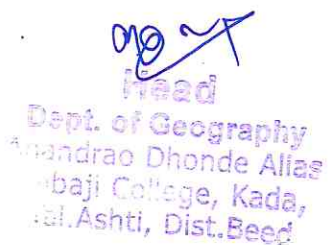 Head
Dept. of Geography
Anandrao Dhonde Alias
baji College, Kada,
Ashti, Dist.Beed